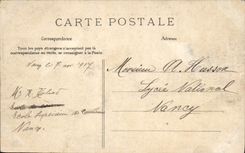 CARTE POSTALE
Correspondance
Adresse
Tous les pays étrangers n'acceptent pas la
correspondance au recto, se renseigner à la Poste.
Nancy le 7 1917
Monsieur A. Husson
Lycée National
Nancy
M. R.
École Supérieure de
Nancy.